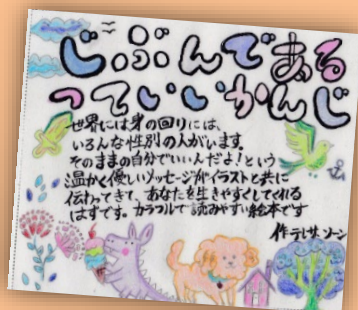 じぶんである
っていいかんじ
世界には身の回りには、
いろんな性別の人がいます。
そのままの自分でいいんだよ！という
温かく優しいメッセージがイラストと共に
伝わってきて、あなたを生きやすくしてくれる
はずです。カラフルで読みやすい絵本です
作テレサ・ソーン